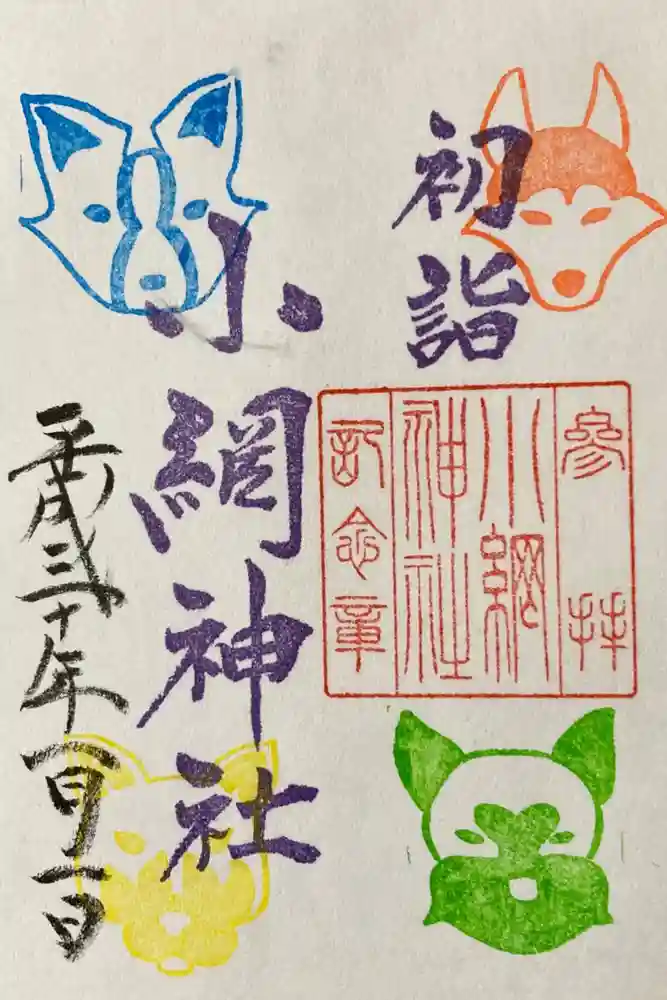 初詣
參拝
小網
神社
記念章
小網神社
平成三十年一月一日